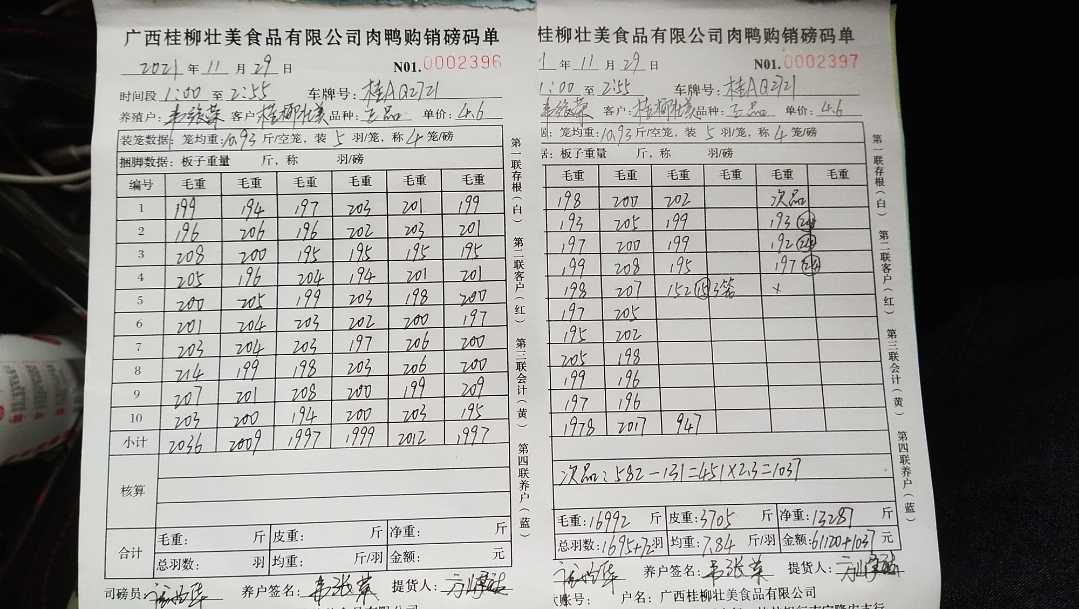 广西桂柳壮美食品有限公司肉鸭购销磅码单
2021年11月29日 N01.0002396
时间段 1:00 至 2:55 车牌号: 桂AQ2721
养殖户: 韦张荣 客户 桂柳壮美 品种: 正品 单价: 4.6
装笼数据: 笼均重: 10.93 斤/空笼, 装 5 羽/笼, 称 4 笼/磅
捆脚数据: 板子重量 斤, 称 羽/磅
编号 毛重 毛重 毛重 毛重 毛重 毛重
1 199 194 197 203 201 199
2 196 206 196 202 203 201
3 208 200 195 195 195 195
4 205 196 204 194 201 201
5 200 205 199 203 198 200
6 201 204 203 202 200 197
7 203 204 203 197 206 200
8 214 199 198 203 206 200
9 207 201 208 200 199 209
10 203 200 194 200 203 195
小计 2036 2009 1997 1999 2012 1997
核算
合计
毛重: 斤 皮重: 斤 净重: 斤
总羽数: 羽 均重: 斤/羽 金额: 元
司磅员: 养户签名: 韦张荣 提货人:
第一联存根(白) 第二联客户(红) 第三联会计(黄) 第四联养户(蓝)
桂柳壮美食品有限公司肉鸭购销磅码单
1年11月29日 N01.0002397
1:00 至 2:55 车牌号: 桂AQ2721
韦张荣 客户: 桂柳壮美 品种: 正品 单价: 4.6
据: 笼均重: 10.93 斤/空笼, 装 5 羽/笼, 称 4 笼/磅
据: 板子重量 斤, 称 羽/磅
毛重 毛重 毛重 毛重 毛重 毛重
198 200 202 次品
193 205 199 193
197 200 199 192
199 208 195 197
198 207 152 15 3笼 x
197 205
195 202
205 198
199 196
197 196
1978 2017 947
次品: 582-131=451×2.3=1037
毛重: 16992 斤 皮重: 3705 斤 净重: 13287 斤
总羽数: 1695+72 羽 均重: 7.84 斤/羽 金额: 61120+1037 元
养户签名: 韦张荣 提货人:
账号: 户名: 广西桂柳壮美食品有限公司
第一联存根(白) 第二联客户(红) 第三联会计(黄) 第四联养户(蓝)